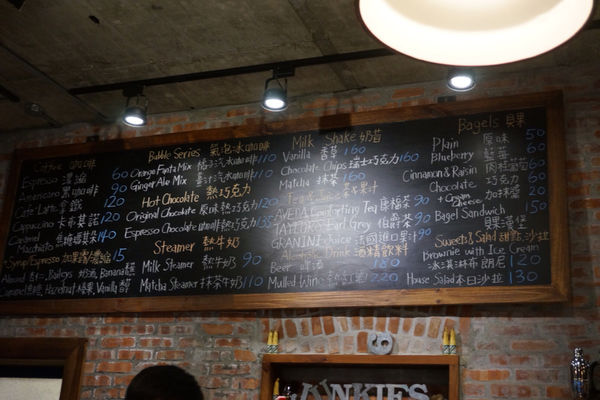 Coffee 咖啡
Espresso 濃縮 60
Americano 黑咖啡 90
Café Latte 拿鐵 120
Cappuccino 卡布其諾 120
Caramel 焦糖 140
+Syrup/Espresso 15
Almond Baileys 奶酒 Banana
Hazelnut 榛果 Vanilla
Bubble Series 氣泡冰咖啡
Orange Fanta Mix 橘子汽水咖啡 110
Ginger Ale Mix 薑汁汽水咖啡 110
Hot Chocolate 熱巧克力
Original Chocolate 原味熱巧克力 120
Espresso Chocolate 咖啡熱巧克力 135
Steamer 熱牛奶
Milk Steamer 熱牛奶 90
Matcha Steamer 抹茶牛奶 110
Milk Shake 奶昔
Vanilla 香草 160
Chocolate Chips 瑞士巧克力 160
Matcha 抹茶 160
茶 & 果汁
AVEDA Comforting Tea 康福茶 90
TAYLORS Earl Grey 伯爵茶 90
GRANINI Juice 法國進口果汁 90
Drink 酒精飲料
Beer 啤酒
Mulled Wine 熱紅酒 220
Bagels 貝果
Plain 原味 50
Blueberry 藍莓 60
Cinnamon & Raisin 肉桂葡萄 60
Chocolate 巧克力 60
+ Cream Cheese 加抹醬 20
Bagel Sandwich 貝果漢堡 150
Sweets & Salad 甜點, 沙拉
Brownie with Ice Cream
冰淇淋布朗尼 120
House Salad 本日沙拉 130